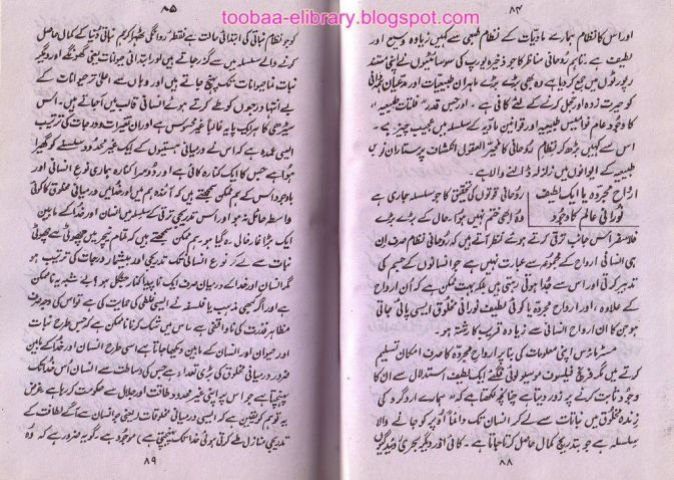 toobaa-elibrary.blogspot.com
۸۴
اور اس کا نظام ہمارے مادیات کے نظام طبعی سے کہیں زیادہ وسیع اور
لطیف ہے۔ تاہم روحانی مناظر کا جو ذخیرہ یورپ کی سوسائٹیوں نے اپنی مستند
رپورٹوں میں جمع کر دیا ہے وہ بھی بڑے بڑے ماہران طبیعیات اور
کو حیرت زدہ اور خجل کرنے کے لئے کافی ہے۔ اور جس قدر
کا وجود عام نوامیس طبیعیہ اور قوانین مادیہ کے سلسلہ میں عجیب چیز ہے۔
اس سے کہیں بڑھ کر نظام روحانی کا محیر العقول انکشاف پرستاران
طبیعیہ کے ایوانوں میں زلزلہ ڈالنے والا ہے۔
ارواح مجردہ یا ایک لطیف نورانی عالم کا وجود
روحانی قوتوں کی تحقیق کا جو سلسلہ جاری ہے
وہ ابھی ختم نہیں ہوا۔ حال کے بڑے بڑے
فلاسفر اس جانب ترقی کرتے ہوئے نظر آتے ہیں کہ روحانی نظام صرف ان
ہی انسانی ارواح کے مجموعہ سے عبارت نہیں ہے جو انسانوں کے جسم کی
تدبیر کرتی اور اس سے جدا ہوتی رہتی ہیں بلکہ بہت ممکن ہے کہ ان ارواح
کے علاوہ، اور ارواح مجردہ یا کوئی لطیف نورانی مخلوق ایسی پائی جاتی
ہو جن کا ان ارواح انسانی سے زیادہ قریب کا رشتہ ہو۔
مسٹر مائرس اپنی معلومات کی بنا پر ارواح مجردہ کا صرف امکان تسلیم
کرتے ہیں مگر فرنچ فیلسوف موسیو لوئی فگیے ایک لطیف استدلال سے ان کا
وجود ثابت کرنے پر زور دیتا ہے چنانچہ لکھتا ہے کہ ہمارے ارد گرد کی
زندہ مخلوق میں نباتات سے لے کر انسان تک دائماً اوپر کو جانے والا
سلسلہ ہے جو بتدریج کمال حاصل کرتا جاتا ہے۔ کائی اور دیگر بحری
۸۸
۸۵
کو جو نظام نباتی کی ابتدائی حالت ہے نقطہ روانگی ٹھہرا کر ہم نباتی دنیا کے کمال حاصل
کرنے والے سلسلہ میں سے گزر جاتے ہیں اور ابتدائی حیوانات یعنی گھونگے اور دیگر
نبات نما حیوانات تک پہنچ جاتے ہیں اور وہاں سے اعلیٰ تر حیوانات کے
بے انتہا درجوں کو طے کرتے ہوئے انسانی قالب میں آ جاتے ہیں۔ اس
سیڑھی کا ہر ایک پایہ غالباً غیر محسوس ہے اور ان تغیرات و درجات کی ترتیب
ایسی عمدہ ہے کہ اس نے درمیانی ہستیوں کے ایک غیر محدود سلسلے کو گھیرا
ہوا ہے جس کا ایک کنارہ کائی ہے اور دوسرا کنارہ ہماری نوع انسانی اور
باوجود اس کے ہم ممکن سمجھتے ہیں کہ آئندہ ہم میں اور خدا میں درمیانی مخلوق کا کوئی
واسطہ حائل نہ ہو اور اس تدریجی ترقی کے سلسلہ میں انسان اور خدا کے مابین
ایک بڑا غار خالی رہ گیا ہو۔ ہم ممکن سمجھتے ہیں کہ تمام نیچر میں چھوٹی سے چھوٹی
نبات سے لے کر نوع انسانی تک تدریجی اور بیشمار درجات کی ترتیب ہو
مگر انسان اور خدا کے درمیان صرف ایک ناپیدا کنار جنگل ہو! بے شبہ یہ ناممکن
ہے اور اگر کبھی مذہب یا فلسفہ نے ایسی غلطی کی حمایت کی ہے تو اس کی وجہ صرف
مظاہر قدرت کی ناواقفی ہے۔ اس میں شک کرنا ناممکن ہے کہ جس طرح نبات
اور حیوان اور انسان کے مابین دیکھا جاتا ہے اسی طرح انسان اور خدا کے مابین
ضرور درمیانی مخلوق کی بڑی تعداد ہے جس کی وساطت سے انسان اس خدا تک
پہنچتا ہے جو اس پر اپنی غیر محدود طاقت اور جلال سے حکومت کر رہا ہے۔ غرض
یہ تو ہم کو یقین ہے کہ ایسی درمیانی مخلوقات (یعنی جو انسان سے آگے لطافت کے
تدریجی منازل طے کرتی ہوئی خدا تک پہنچتی ہے) موجود ہے۔ گو یہ ضرور ہے کہ وہ
۸۹